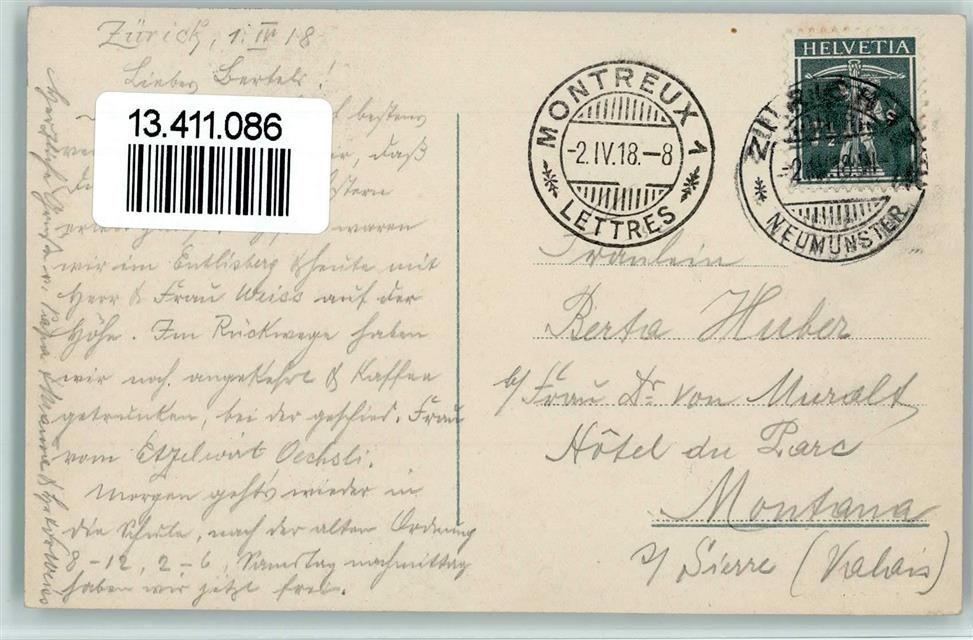 Zürich, 1. IV 18
Liebes Berteli!
bestens
daß
Ostern
waren
wir im Entlisberg & heute mit
Herr & Frau Weiss auf der
Höhe. Im Rückwege haben
wir noch angekehrt & Kaffee
getrunken, bei der geschied. Frau
vom Etzelwirt Oechsli.
Morgen geht's wieder in
die Schule, nach der alten Ordnung
8-12, 2-6, Samstag nachmittag
haben wir jetzt frei.
Herzliche Grüsse v. Papa & Mamma &
13.411.086
MONTREUX 1
-2.IV.18.-8
LETTRES
HELVETIA
NEUMÜNSTER
Fräulein
Berta Huber
b/ Frau Dr. von Muralt
Hôtel du Parc
Montana
s/ Sierre (Valais)